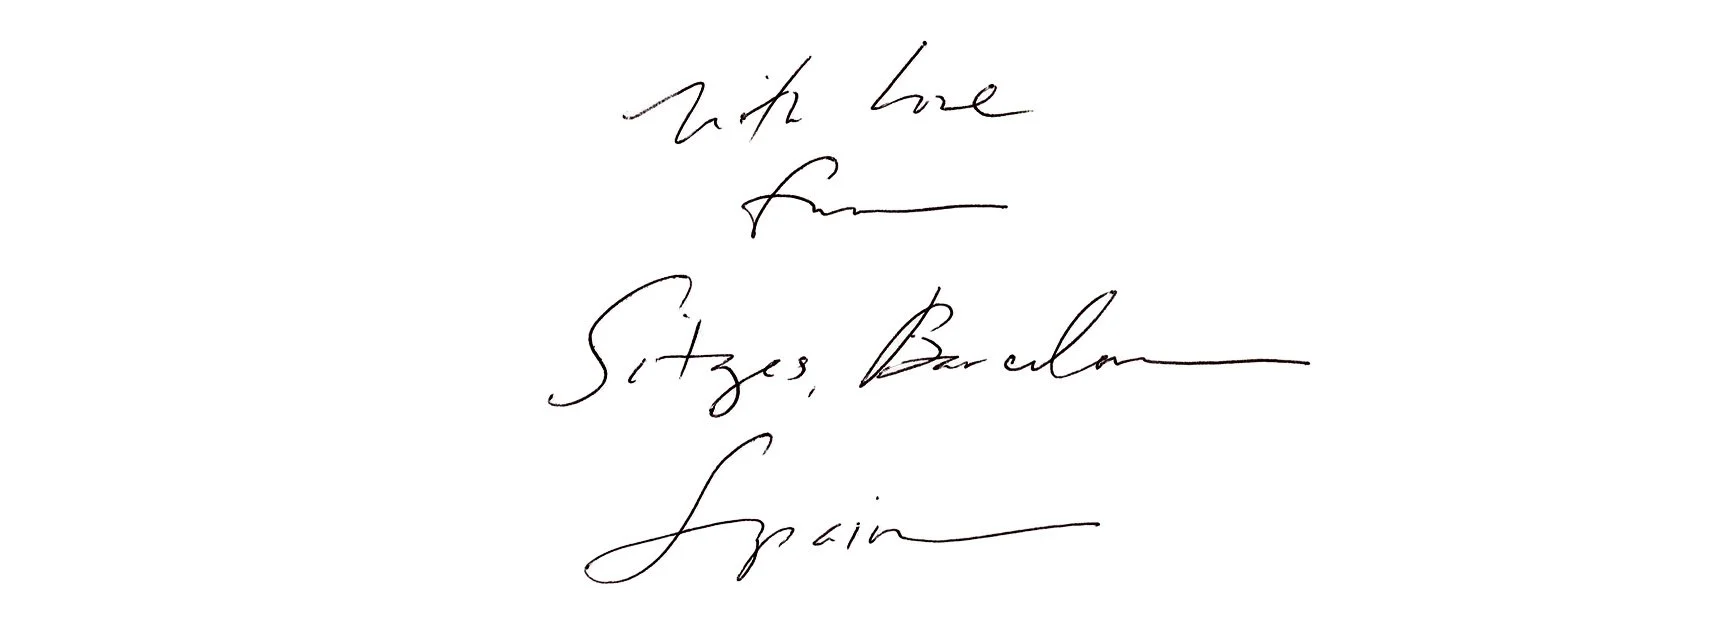 with love
from
Sitges, Barcelona
Spain